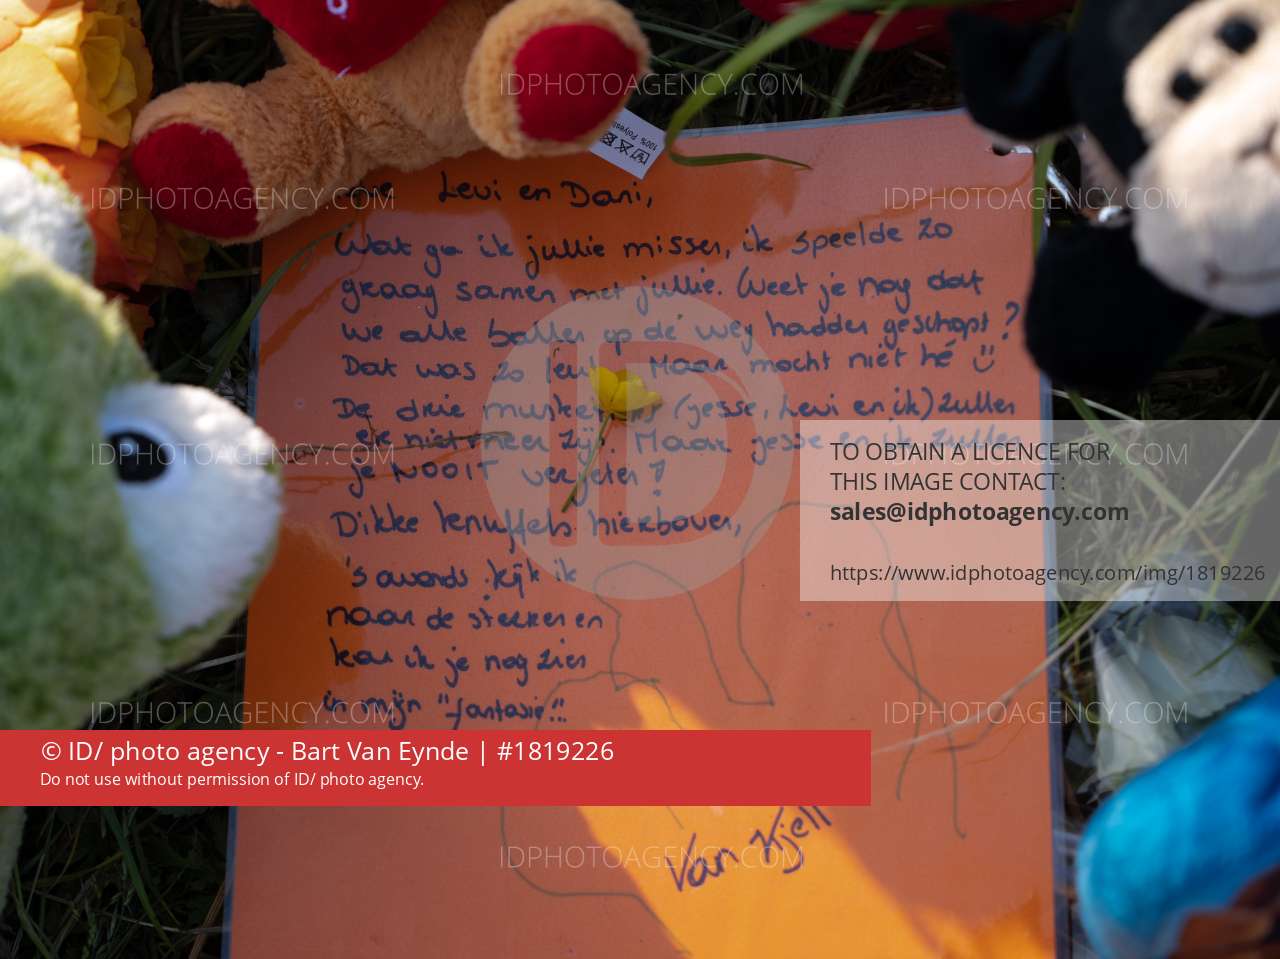 100% Polyester
Levi en Dani,
Wat ga ik jullie missen, ik speelde zo
graag samen met jullie. Weet je nog dat
we alle ballen op de weg hadden geschopt?
Dat was zo leuk. Maar mocht niet hé
De drie musketiers (Jesse, Levi en ik) zullen
er niet meer zijn. Maar Jesse en ik zullen
je NOOIT vergeten!
Dikke knuffels hierboven,
's avonds kijk ik
naar de sterren en
kan ik je nog zien
in mijn "fantasie".
Van Kjell
IDPHOTOAGENCY.COM
IDPHOTOAGENCY.COM
IDPHOTOAGENCY.COM
IDPHOTOAGENCY.COM
IDPHOTOAGENCY.COM
IDPHOTOAGENCY.COM
IDPHOTOAGENCY.COM
IDPHOTOAGENCY.COM
ID
TO OBTAIN A LICENCE FOR
THIS IMAGE CONTACT:
sales@idphotoagency.com
https://www.idphotoagency.com/img/1819226
© ID/ photo agency - Bart Van Eynde | #1819226
Do not use without permission of ID/ photo agency.